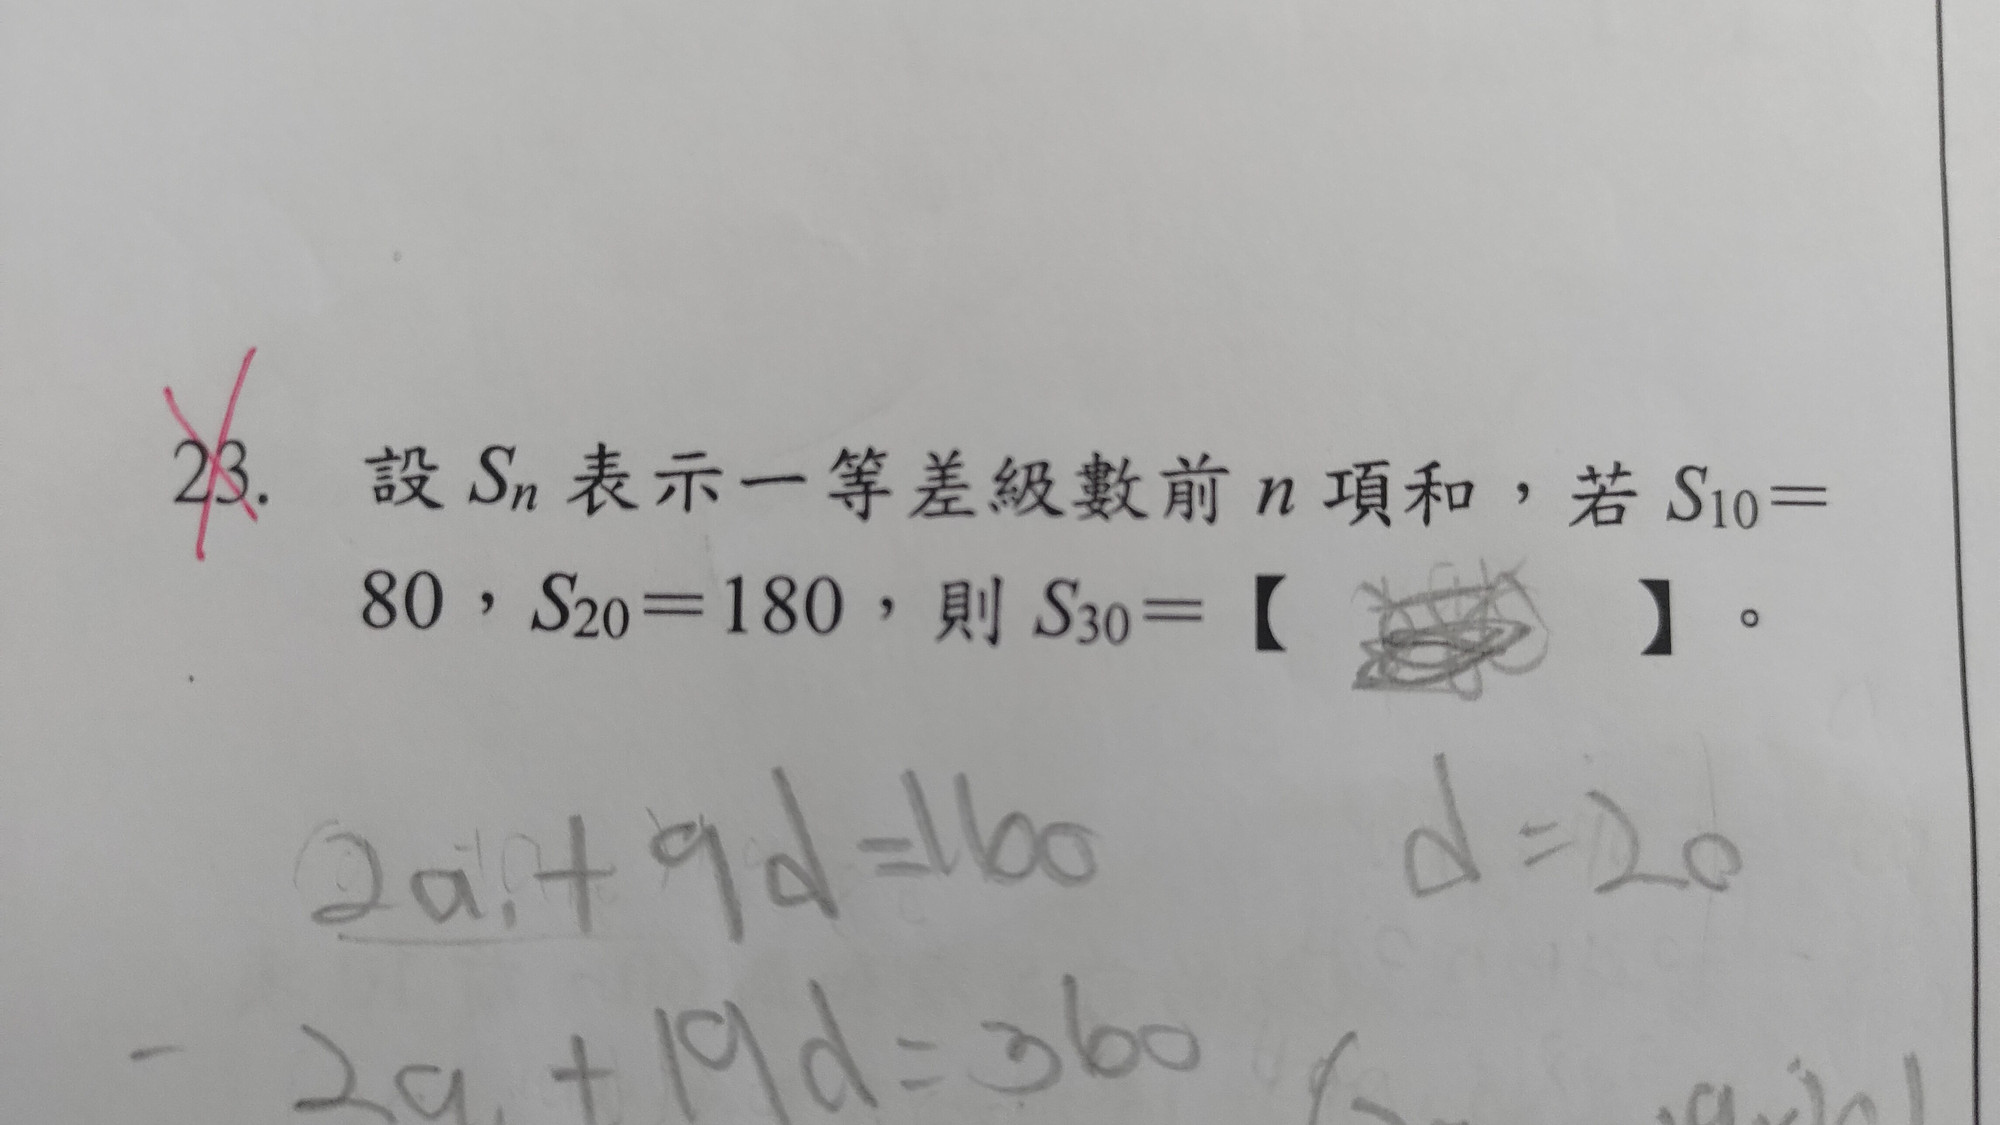 23. 設 Sn 表示一等差級數前 n 項和，若 S10=
80，S20=180，則 S30=【 】。
2a1+9d=160 d=20
- 2a1+19d=360